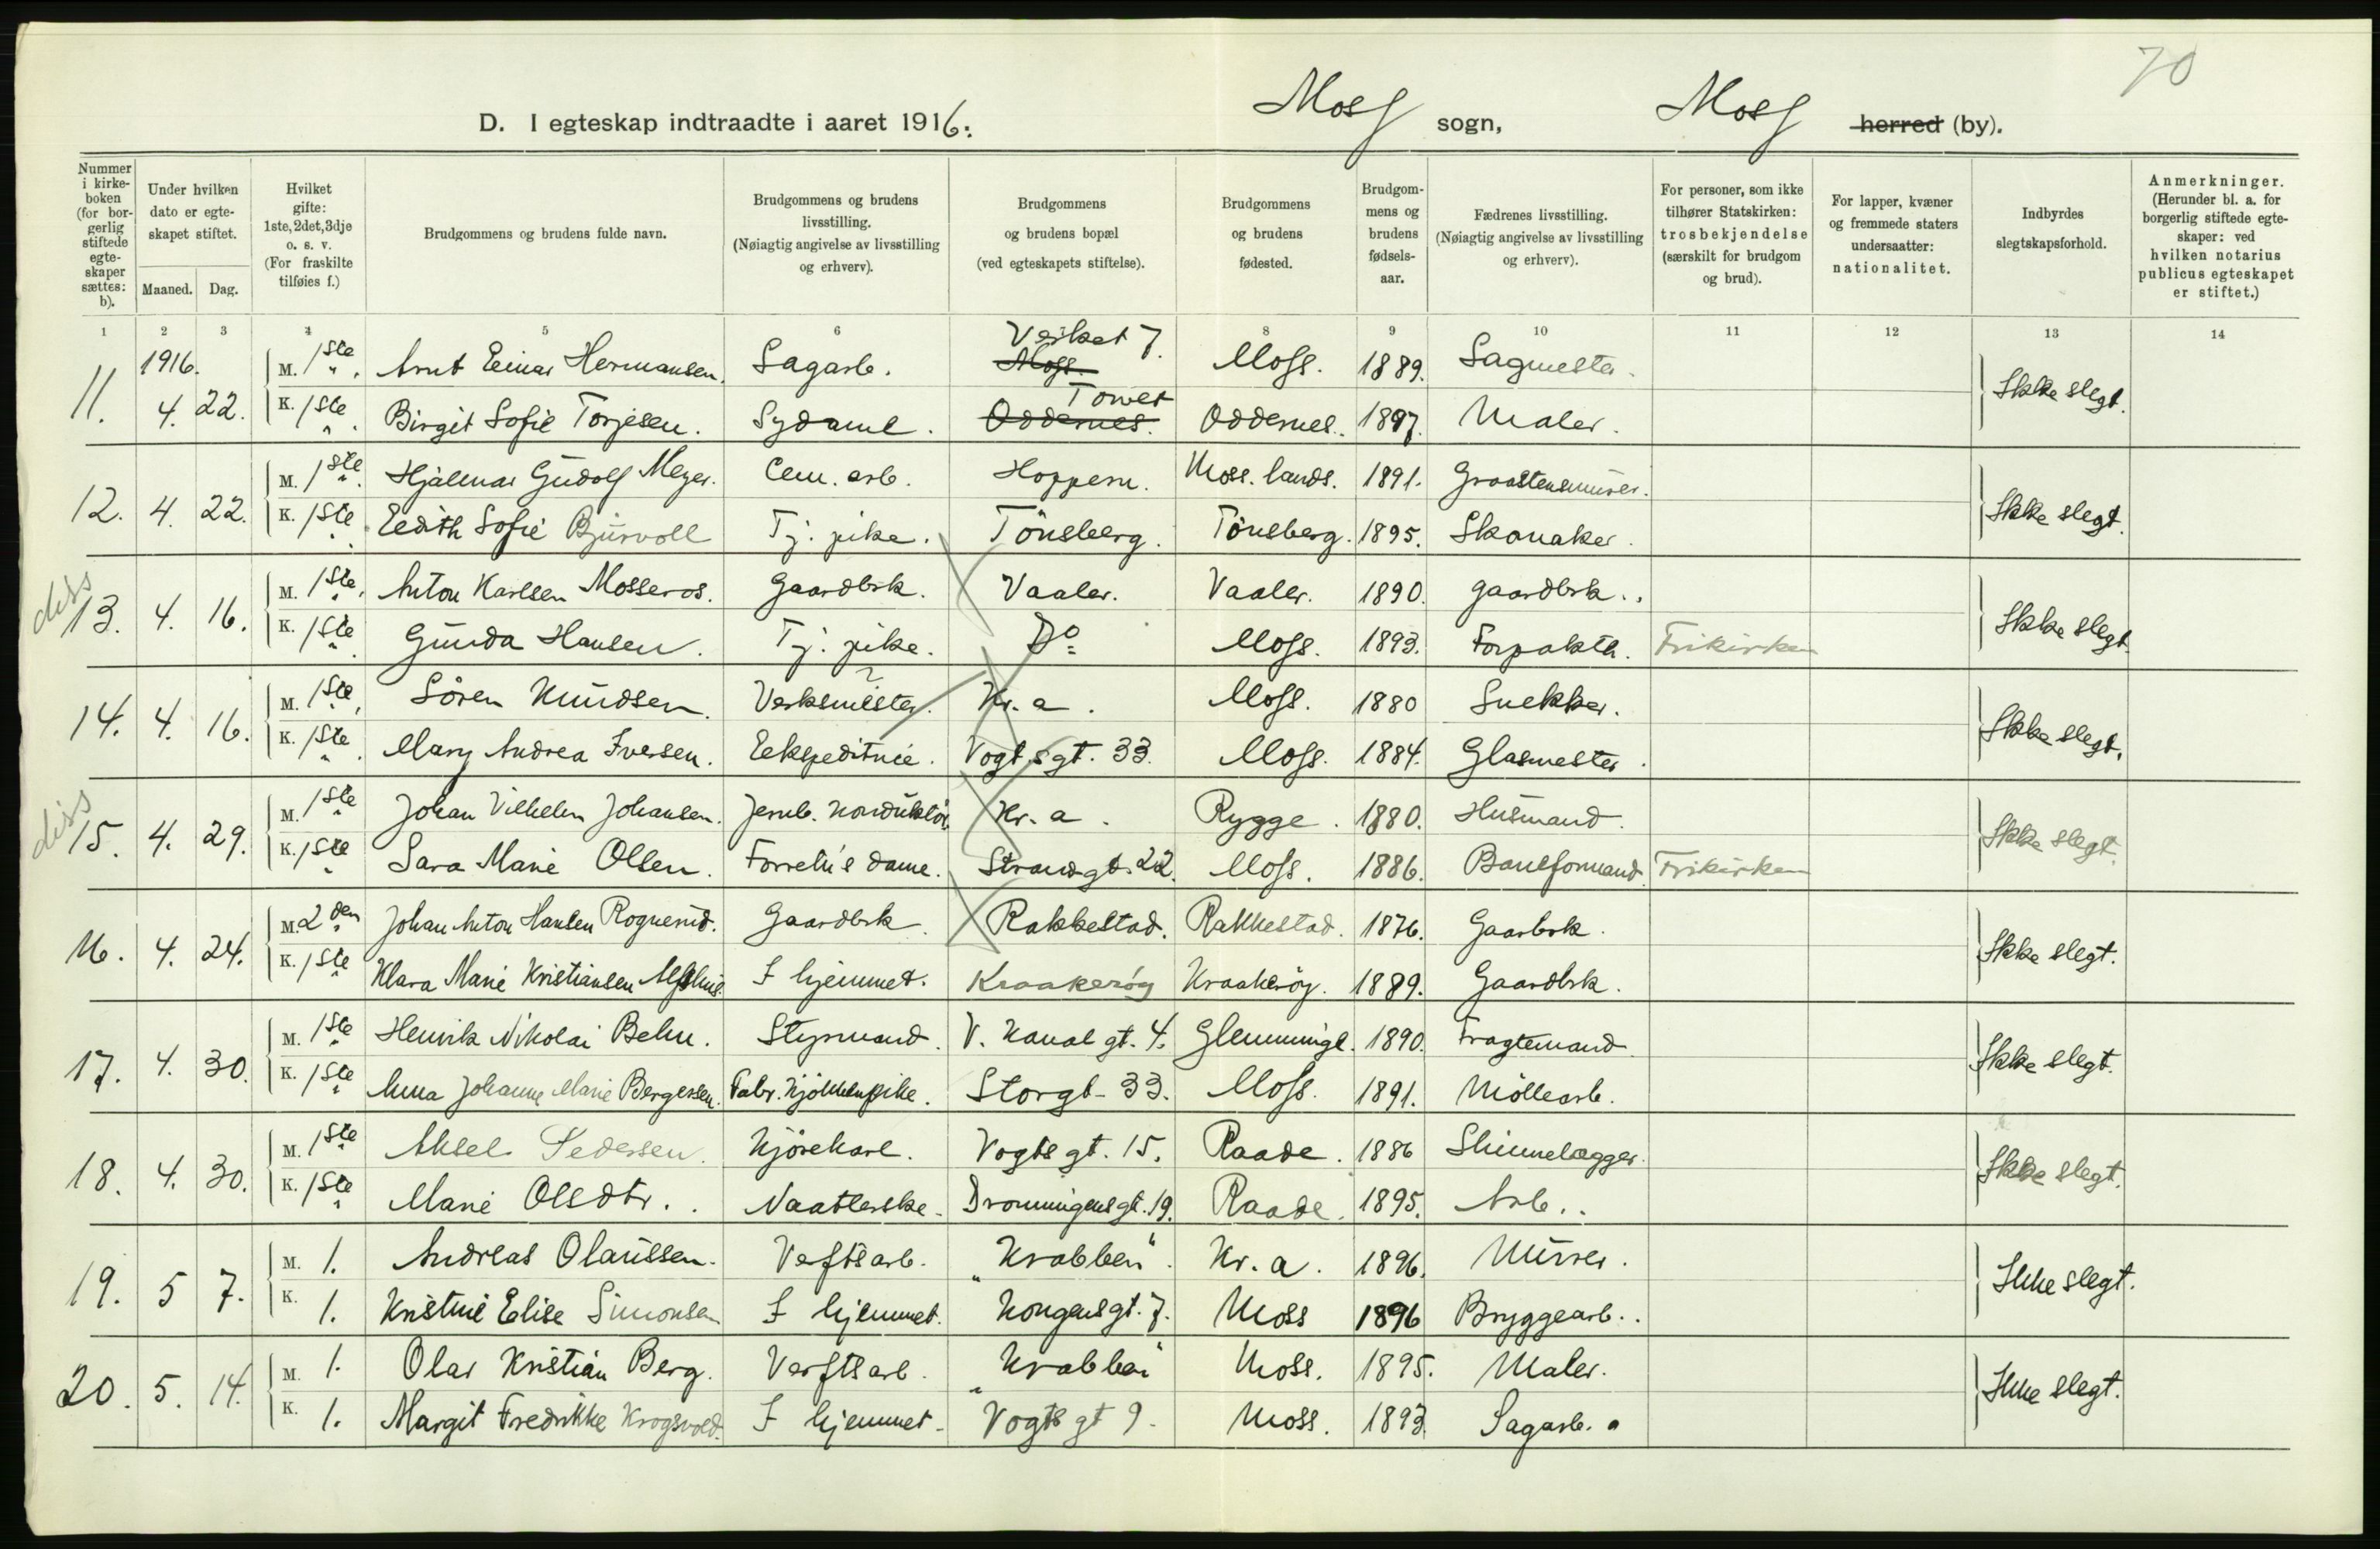 70
D. I egteskap indtraadte i aaret 1916. Moss sogn, Moss herred (by).
Nummer i kirke-boken (for bor-gerlig stiftede egte-skaper sættes: b).
Under hvilken dato er egte-skapet stiftet.
Maaned. Dag.
Hvilket gifte: 1ste, 2det, 3dje o. s. v. (For fraskilte tilføies f.)
Brudgommens og brudens fulde navn.
Brudgommens og brudens livsstilling. (Nøiagtig angivelse av livsstilling og erhverv).
Brudgommens og brudens bopæl (ved egteskapets stiftelse).
Brudgommens og brudens fødested.
Brudgom-mens og brudens fødsels-aar.
Fædrenes livsstilling. (Nøiagtig angivelse av livsstilling og erhverv).
For personer, som ikke tilhører Statskirken: trosbekjendelse (særskilt for brudgom og brud).
For lapper, kvæner og fremmede staters undersaatter: nationalitet.
Indbyrdes slegtskapsforhold.
Anmerkninger. (Herunder bl. a. for borgerlig stiftede egte-skaper: ved hvilken notarius publicus egteskapet er stiftet.)
1 2 3 4 5 6 8 9 10 11 12 13 14
1916. M. 1ste Arnt Einar Hermansen. Sagarb. Moss. Verket 7. Moss. 1889. Sagmester.
11. 4. 22. K. 1ste Birgit Sofie Torjesen. Sydame. Oddernes. Torvet Oddernes. 1897. Maler. Ikke slegt.
M. 1ste Hjalmar Gudolf Meyer. Cem. arb. Hoppern. Moss. lands. 1891. Graastensmurer.
12. 4. 22. K. 1ste Edith Sofie Bjurvoll Tj. pike. Tönsberg. Tönsberg. 1895. Skomaker. Ikke slegt.
diss M. 1ste Anton Karlsen Mosseros. Gaardbrk. Vaaler. Vaaler. 1890. gaardbrk.
13. 4. 16. K. 1ste Gunda Hansen. Tj. pike. Do Moss. 1893. Forpakter. Frikirken Ikke slegt.
M. 1ste Sören Knudsen. Verksmester. Kr.a. Moss. 1880 Snekker.
14. 4. 16. K. 1ste Mary Andrea Iversen. Ekspeditrice. Vogtsgt. 33. Moss. 1884. Glasmester. Ikke slegt.
diss M. 1ste Johan Vilhelm Johansen. Jernb. konduktör Kr.a. Rygge. 1880. Husmand.
15. 4. 29. K. 1ste Sara Marie Olsen. Forretn's dame. Strandgt. 22. Moss. 1886. Baneformand. Frikirken Ikke slegt.
M. 2den Johan Anton Hansen Rognerud. Gaardbrk. Rakkestad. Rakkestad. 1876. Gaarbrk.
16. 4. 24. K. 1ste Klara Marie Kristiansen I hjemmet. Kraakeröy Kraakeröy. 1889. Gaardbrk. Ikke slegt.
M. 1ste Henrik Nikolai Behn. Styrmand. V. Kanal gt. 4. Glemminge. 1890. Fragtemand.
17. 4. 30. K. 1ste Anna Johanne Marie Bergersen. Fabr. kjökkenpike. Storgt. 33. Moss. 1891. Möllearb. Ikke slegt.
M. 1ste Aksel Pedersen. Kjörekarl. Vogtsgt. 15. Raade. 1886 Skinnelægger.
18. 4. 30. K. 1ste Marie Olsdtr. Naatlerske. Dronningensgt. 19. Raade. 1895. Arb. Ikke slegt.
M. 1. Andreas Olaussen. Verftsarb. "Krabben". Kr.a. 1896. Murer.
19. 5 7. K. 1. Kristine Elise Simonsen I hjemmet. Kongensgt. 7. Moss 1896 Bryggearb. Ikke slegt.
M. 1. Olav Kristian Berg. Verftsarb. "Krabben" Moss. 1895. Maler.
20. 5. 14. K. 1. Margit Fredrikke Krogsvold. I hjemmet. Vogtsgt 9. Moss. 1893. Sagarb. Ikke slegt.